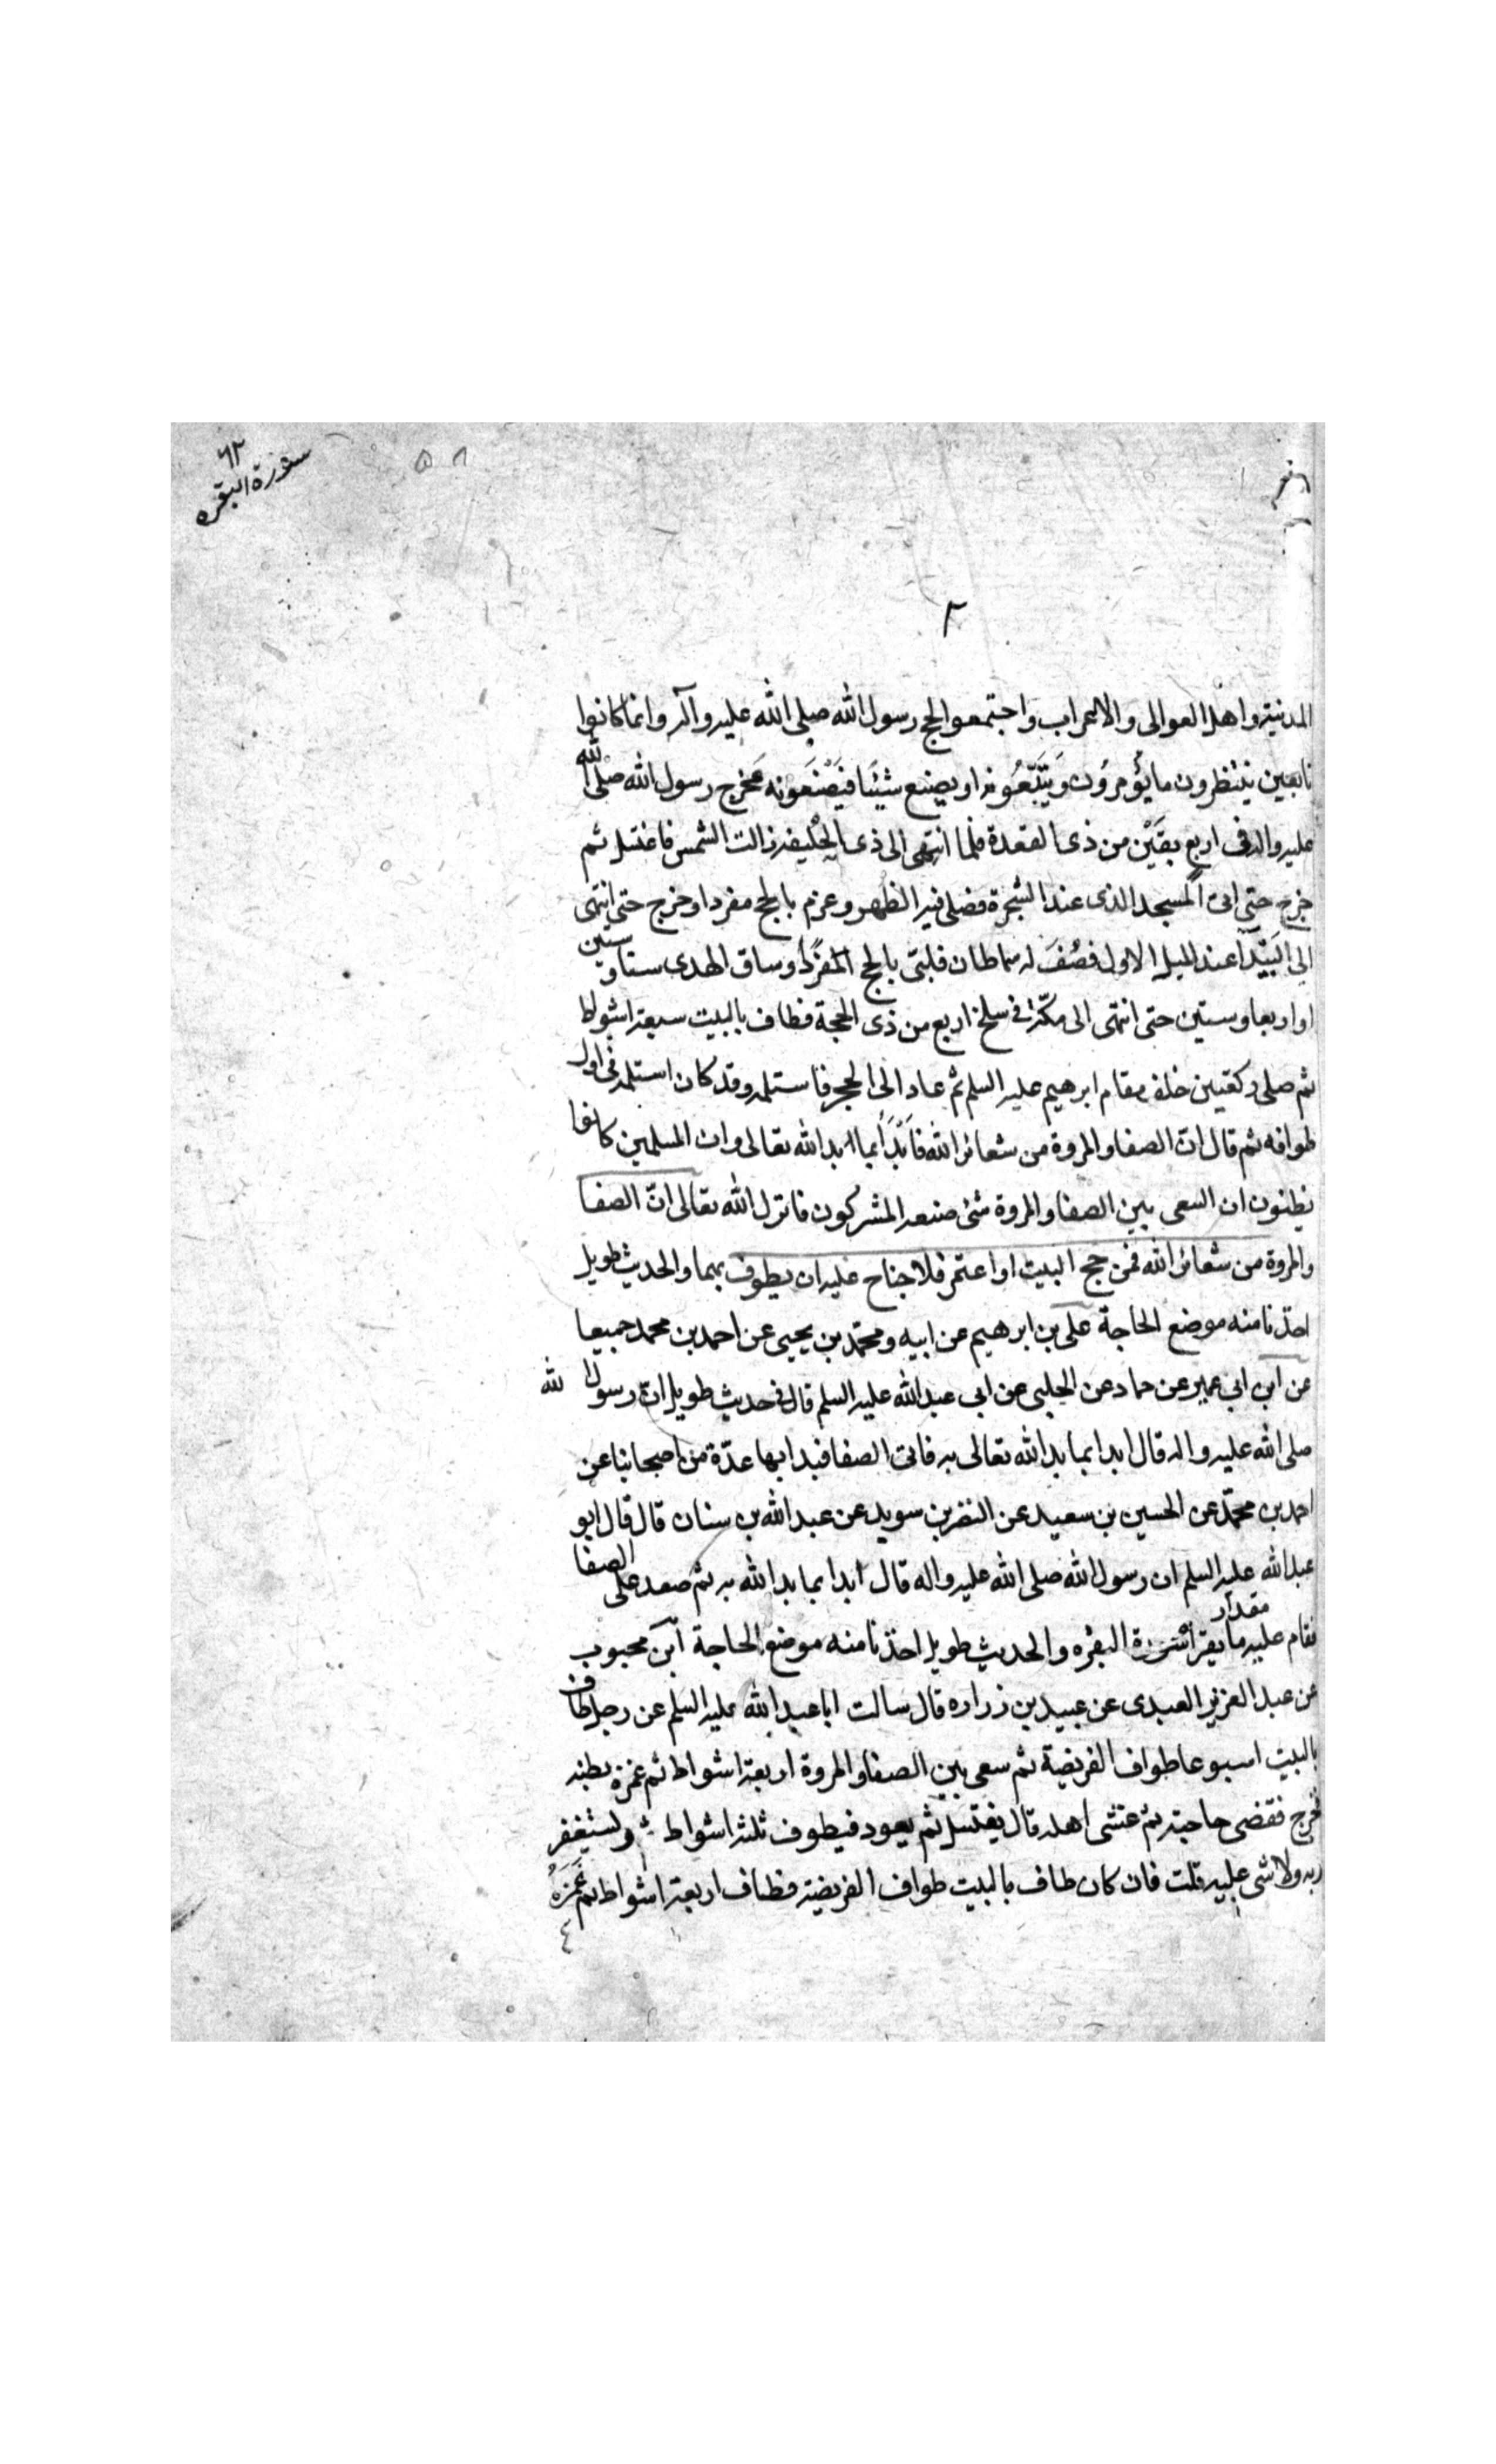 ٦٢
سورة البقره
٥٨
٢
المدنية واهل العوالى والاعراب واجتمعوا لحج رسول الله صلى الله عليه وآله وانما كانوا
تابعين ينتظرون ما يؤمرون ويتبعونه او يصنع شيئا فيصنعونه فخرج رسول الله صلى الله
عليه واله فى اربع بقين من ذى القعدة فلما انتهى الى ذى الحليفه زالت الشمس فاغتسل ثم
خرج حتى اتى المسجد الذى عند الشجرة فصلى فيه الظهر وعزم بالحج مفردا وخرج حتى انتهى
الى البيدآ عند الميل الاول فصف له سماطان فلبى بالحج المفرد وساق الهدى ستا وستين
او اربعا وستين حتى انتهى الى مكة فى سلخ اربع من ذى الحجة فطاف بالبيت سبعة اشواط
ثم صلى ركعتين خلف مقام ابرهيم عليه السلم ثم عاد الى الحجر فاستلمه وقد كان استلمه فى اول
طوافه ثم قال ان الصفا والمروة من شعائر الله فابدأ بما ابدا الله تعالى وان المسلمين كانوا
يظنون ان السعى بين الصفا والمروة شئ صنعه المشركون فانزل الله تعالى انّ الصفا
والمروة من شعائر الله فمن حج البيت او اعتمر فلا جناح عليه ان يطوف بهما والحديث طويل
اخذنا منه موضع الحاجة على بن ابرهيم عن ابيه ومحمد بن يحيى عن احمد بن محمد جميعا
عن ابن ابى عمير عن حماد عن الحلبى عن ابى عبدالله عليه السلم قال فى حديث طويل ان رسول الله
صلى الله عليه واله قال ابدا بما بدا الله تعالى به فاتى الصفا فبدا بها عدّة من اصحابنا عن
احمد بن محمد عن الحسين بن سعيد عن النضر بن سويد عن عبد الله بن سنان قال قال ابو
عبد الله عليه السلم ان رسول الله صلى الله عليه واله قال ابدا بما بدا الله به ثم صعد على الصفا
فقام عليه مقدار ما يقرأ سورة البقره والحديث طويل اخذنا منه موضع الحاجة ابن محبوب
عن عبد العزيز العبدى عن عبيد بن زراره قال سالت ابا عبد الله عليه السلم عن رجل طاف
بالبيت اسبوعا طواف الفريضة ثم سعى بين الصفا والمروة اربعة اشواط ثم غمزه بطنه
فخرج فقضى حاجته ثم غشى اهله قال يغتسل ثم يعود فيطوف ثلثة اشواط ويستغفر
ربه ولا شى عليه قلت فان كان طاف بالبيت طواف الفريضة فطاف اربعة اشواط ثم غمزه